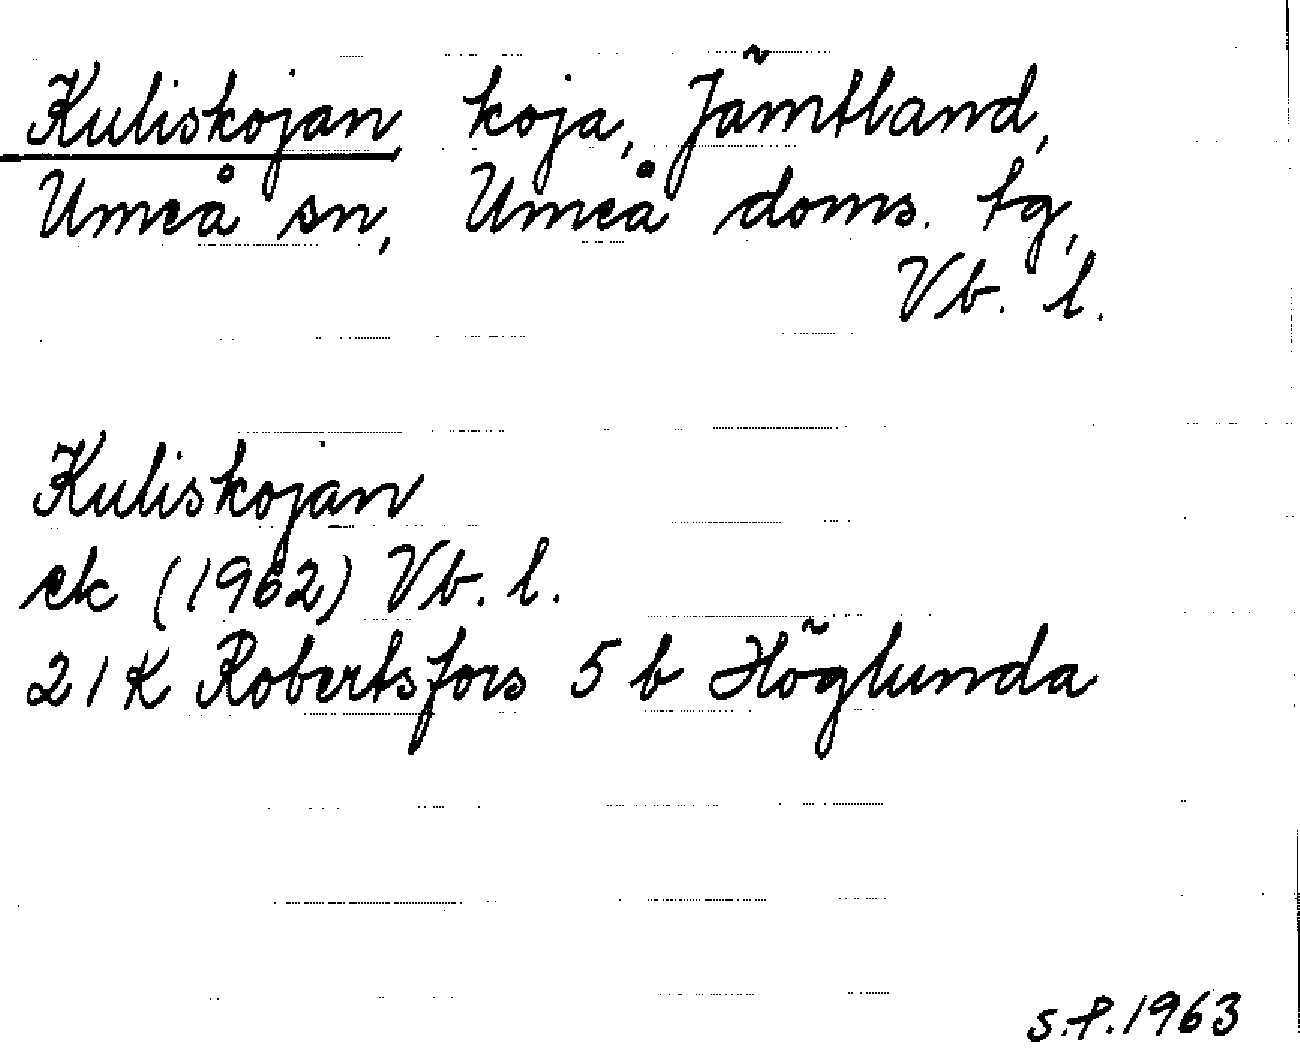 Kuliskojan, koja, Jämtland,
Umeå sn, Umeå doms. tg,
Vb. l.
Kuliskojan
ek (1962) Vb. l.
21 K Robertsfors 5 b Höglunda
S.P. 1963